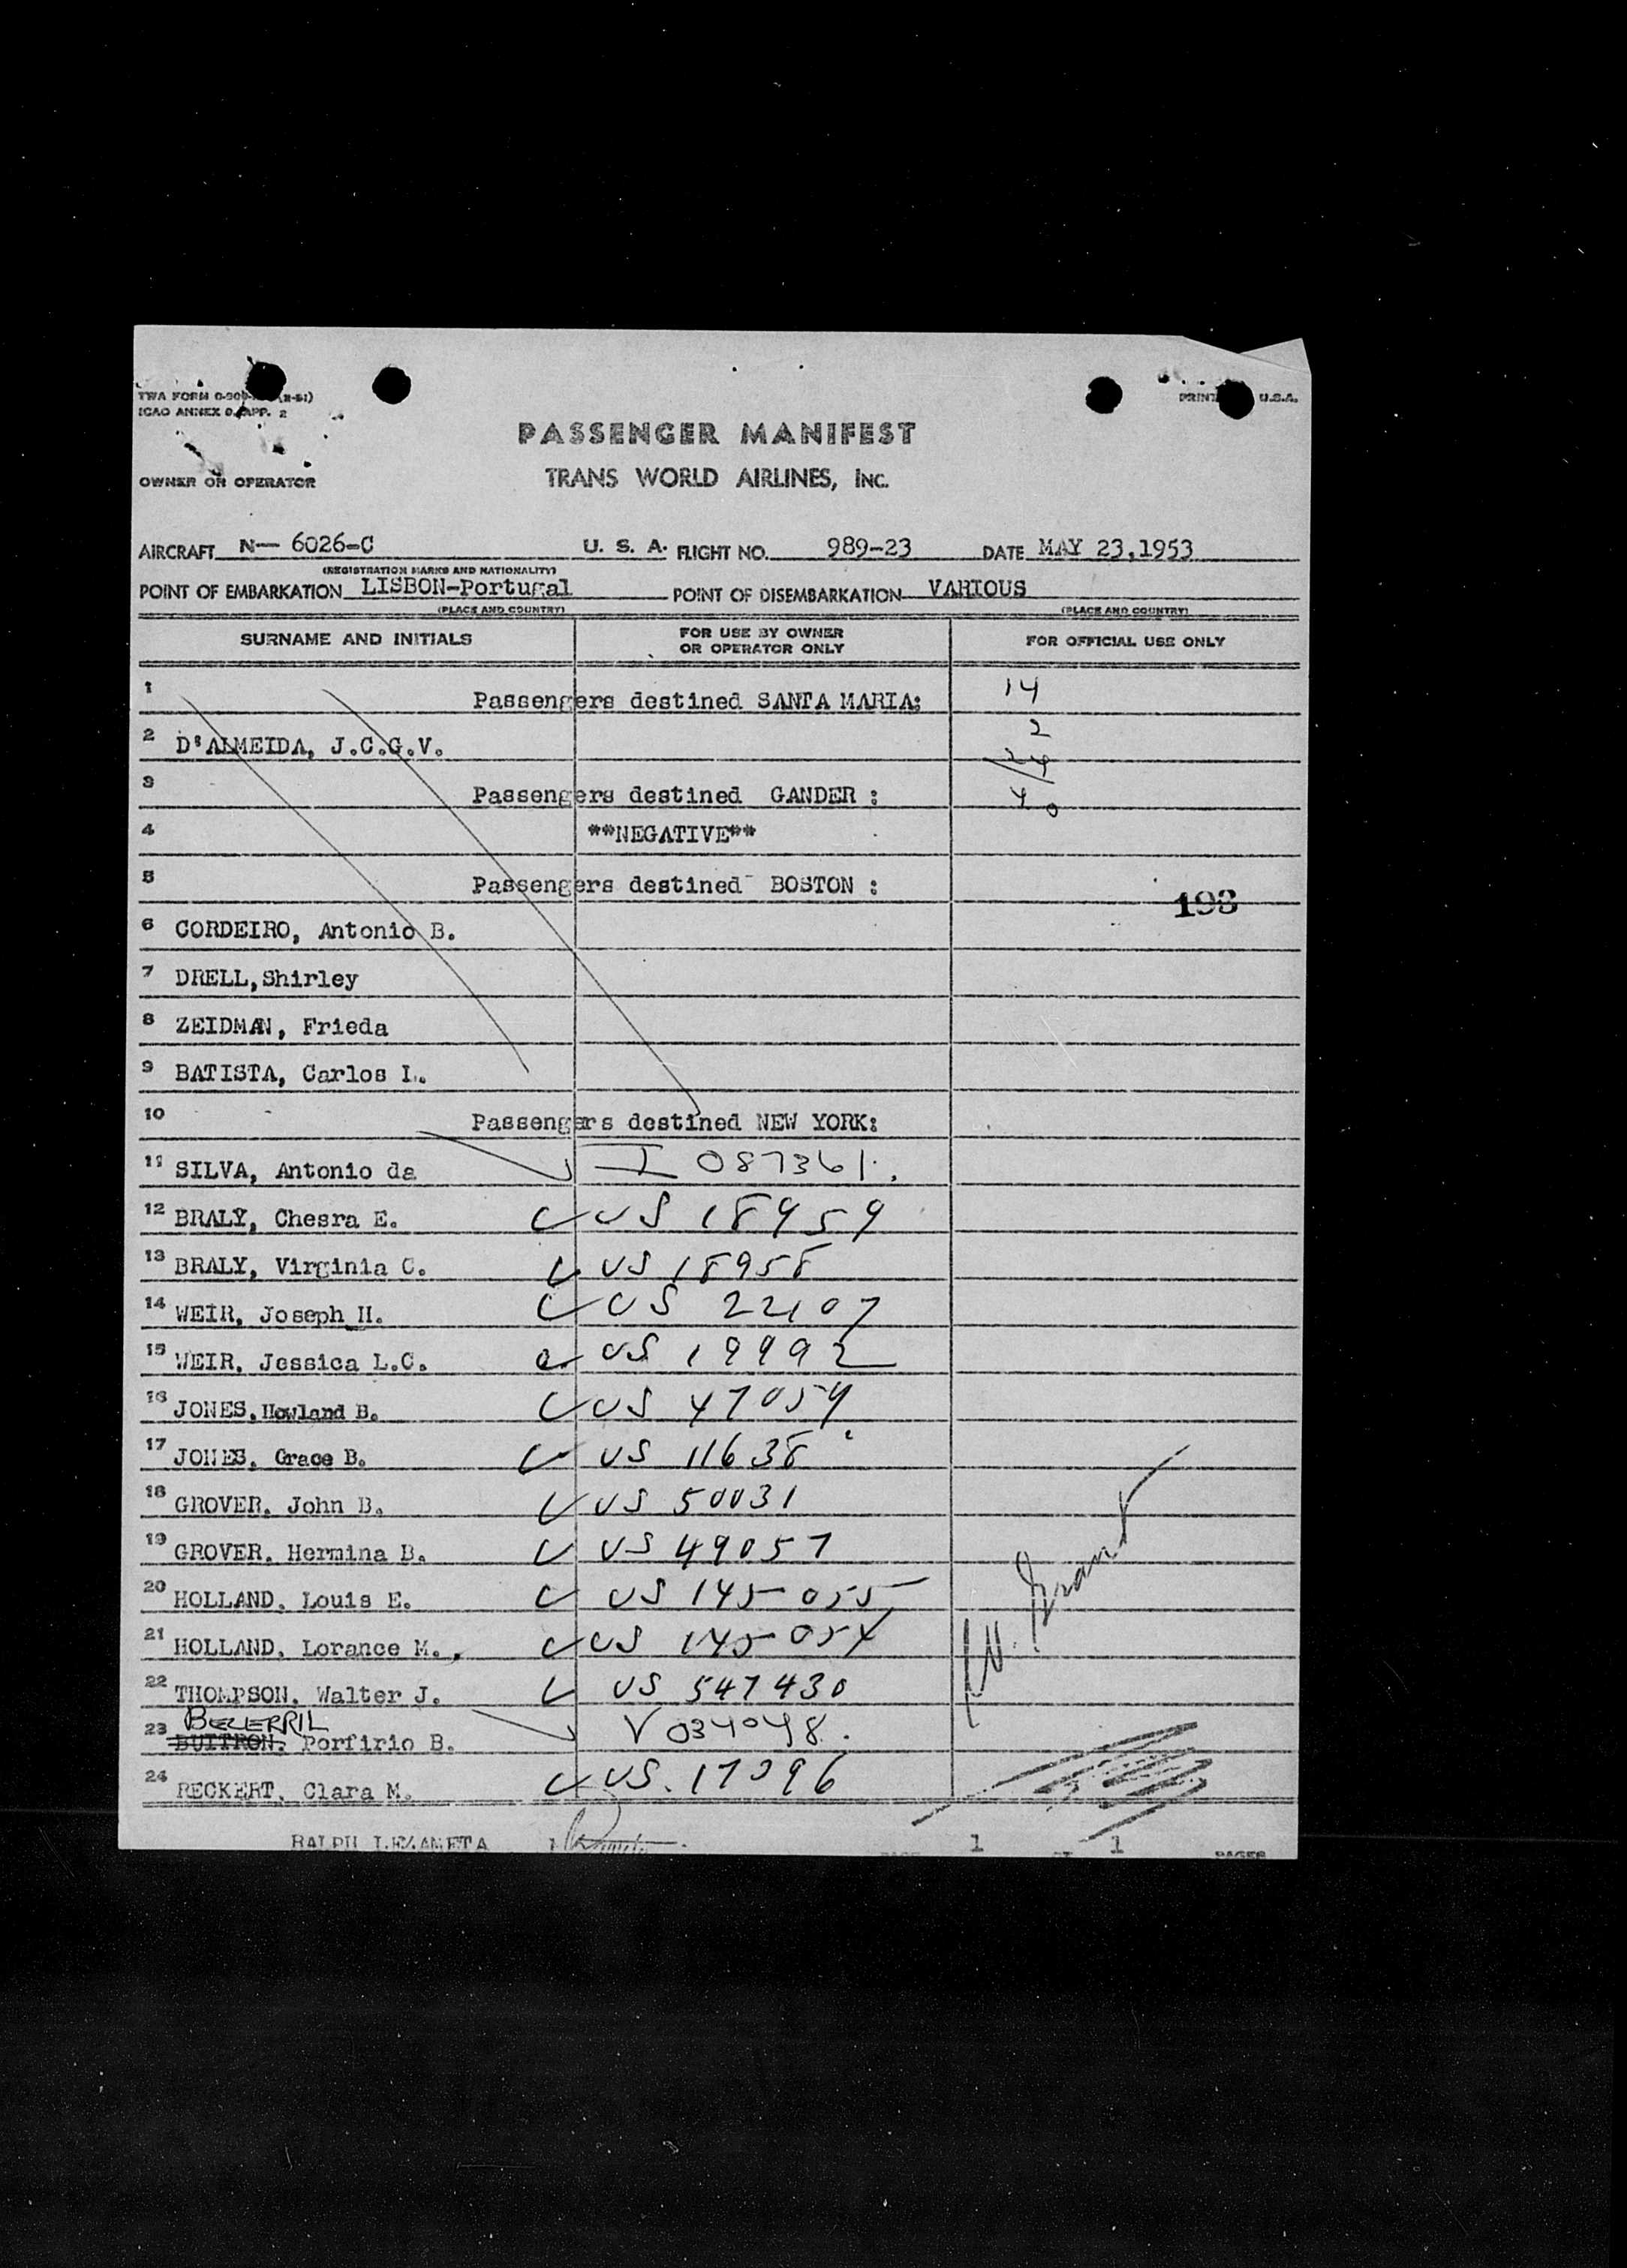 TWA FORM
ICAO ANNEX 9, APP. 2
U.S.A.
PASSENGER MANIFEST
OWNER OR OPERATOR TRANS WORLD AIRLINES, INC.
AIRCRAFT N— 6026-C U. S. A. FLIGHT NO. 989-23 DATE MAY 23,1953
(REGISTRATION MARKS AND NATIONALITY)
POINT OF EMBARKATION LISBON-Portugal POINT OF DISEMBARKATION VARIOUS
(PLACE AND COUNTRY) (PLACE AND COUNTRY)
SURNAME AND INITIALS FOR USE BY OWNER OR OPERATOR ONLY FOR OFFICIAL USE ONLY
1 Passengers destined SANTA MARIA: 14
2 D'ALMEIDA, J.C.G.V. 2
24
3 Passengers destined GANDER : 40
4 **NEGATIVE**
5 Passengers destined BOSTON :
193
6 CORDEIRO, Antonio B.
7 DRELL,Shirley
8 ZEIDMAN, Frieda
9 BATISTA, Carlos L.
10 Passengers destined NEW YORK:
11 SILVA, Antonio da I 087361.
12 BRALY, Chesra E. US 18959
13 BRALY, Virginia C. US 18958
14 WEIR, Joseph H. US 22107
15 WEIR, Jessica L.C. US 19992
16 JONES, Howland B. US 47054
17 JONES, Grace B. US 11638
18 GROVER, John B. US 50031
19 GROVER, Hermina B. US 49057
20 HOLLAND, Louis E. US 145055
21 HOLLAND, Lorance M., US 145054
22 THOMPSON, Walter J. US 547430
BECERRIL
23 BUITRON, Porfirio B. V 034048.
24 RECKERT, Clara M. US. 17096
RALPH LEZAMETA 1 1 PAGES